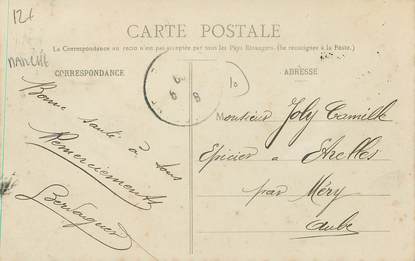 12t
MANCHE
CARTE POSTALE
La Correspondance au recto n'est pas acceptée par tous les Pays Etrangers. (Se renseigner à la Poste.)
CORRESPONDANCE
Bonne santé à tous
Remerciements
ADRESSE
10
Monsieur Joly Camille
Epicier à Etrelles
par Méry
Aube